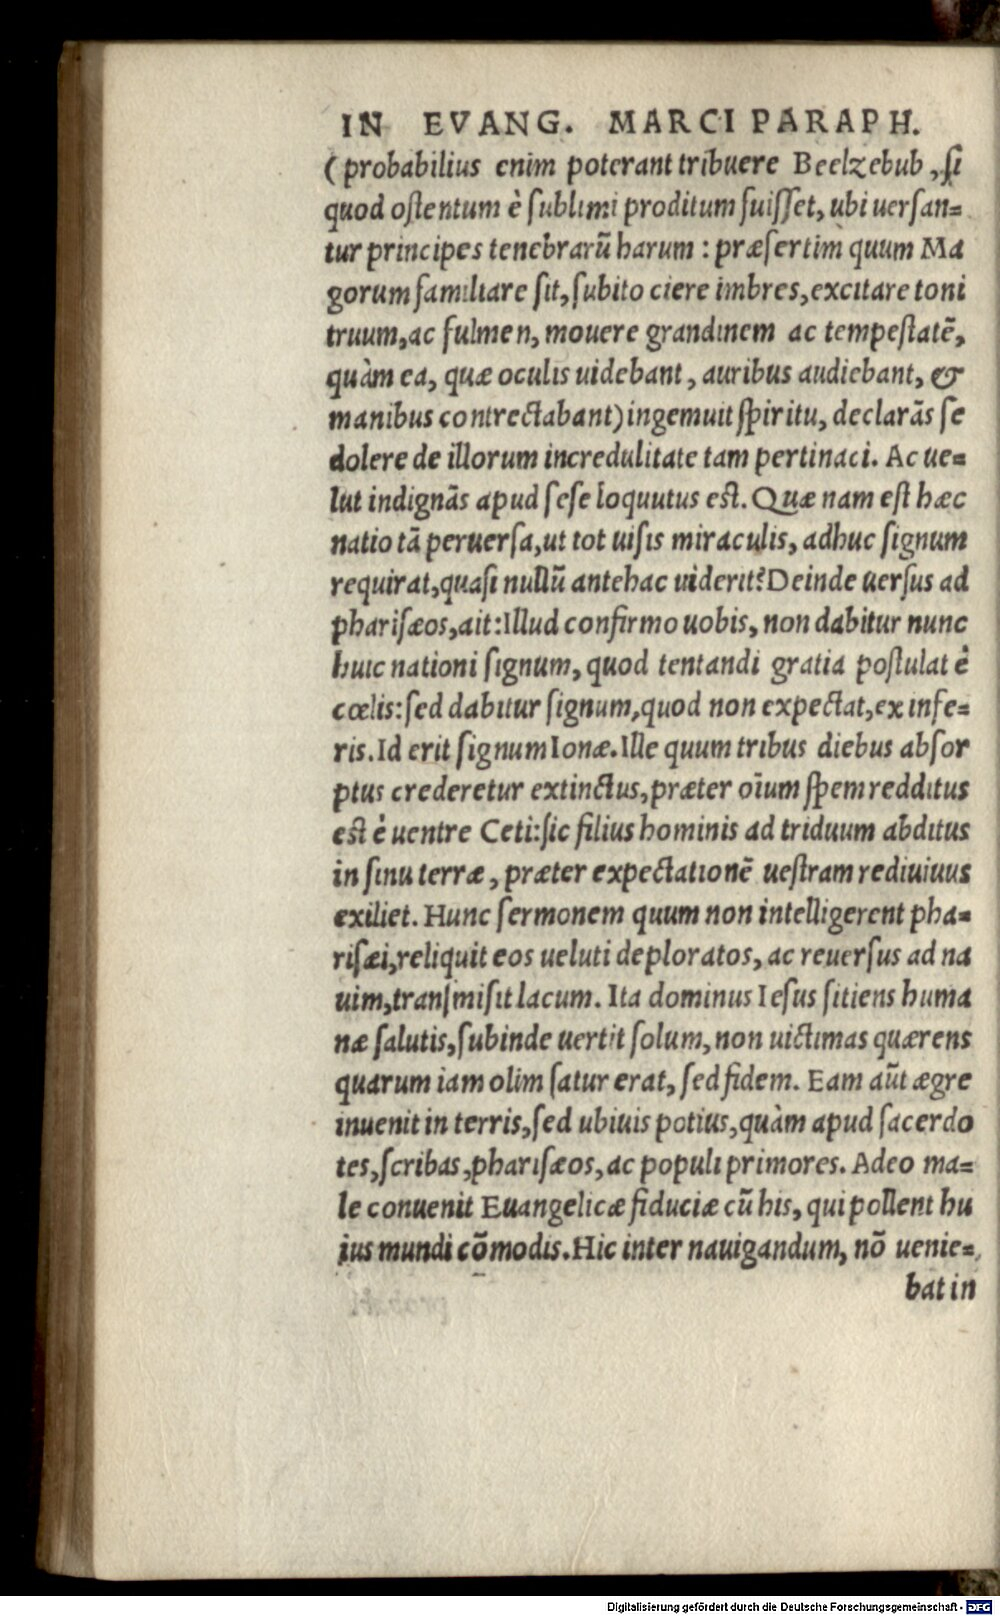 IN EVANG. MARCI PARAPH.
(probabilius enim poterant tribuere Beelzebub, si
quod ostentum è sublimi proditum fuisset, ubi uersan=
tur principes tenebrarũ harum : præsertim quum Ma
gorum familiare sit, subito ciere imbres, excitare toni
truum, ac fulmen, mouere grandinem ac tempestatẽ,
quàm ea, quæ oculis uidebant, auribus audiebant, &
manibus contrectabant) ingemuit spiritu, declarãs se
dolere de illorum incredulitate tam pertinaci. Ac ue=
lut indignãs apud sese loquutus est. Quæ nam est hæc
natio tã peruersa, ut tot uisis miraculis, adhuc signum
requirat, quasi nullũ antehac uiderit? Deinde uersus ad
pharisæos, ait: Illud confirmo uobis, non dabitur nunc
huic nationi signum, quod tentandi gratia postulat è
cœlis: sed dabitur signum, quod non expectat, ex infe=
ris. Id erit signum Ionæ. Ille quum tribus diebus absor
ptus crederetur extinctus, præter oĩum spem redditus
est è uentre Ceti: sic filius hominis ad triduum abditus
in sinu terræ, præter expectationẽ uestram rediuiuus
exiliet. Hunc sermonem quum non intelligerent pha=
risæi, reliquit eos ueluti deploratos, ac reuersus ad na
uim, transmisit lacum. Ita dominus Iesus sitiens huma
næ salutis, subinde uertit solum, non uictimas quærens
quarum iam olim satur erat, sed fidem. Eam aũt ægre
inuenit in terris, sed ubiuis potius, quàm apud sacerdo
tes, scribas, pharisæos, ac populi primores. Adeo ma=
le conuenit Euangelicæ fiduciæ cũ his, qui pollent hu
ius mundi cõmodis. Hic inter nauigandum, nõ uenie=
bat in
Digitalisierung gefördert durch die Deutsche Forschungsgemeinschaft - DFG